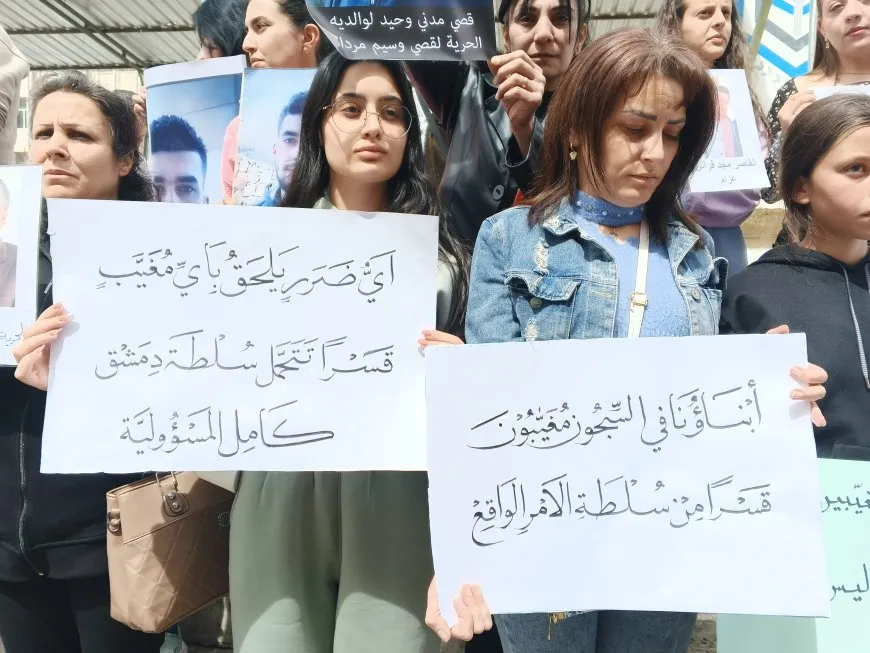 قصي مدني وحيد لوالديه
الحرية لقصي وسيم مرداس
القاصر مجد فراس
عزام
أَيُّ ضَرَرٍ يَلحَقُ بِأَيِّ مُغَيَّبٍ
قَسْرًا تَتَحَمَّل سُلطَة دِمَشْق
كَامِل المَسْؤُوليَّة
أَبْنَاؤُنَا فِي السِّجُون مُغَيَّبُونَ
قَسْرًا مِنْ سُلْطَةِ الأَمْرِ الوَاقِعْ
ليس